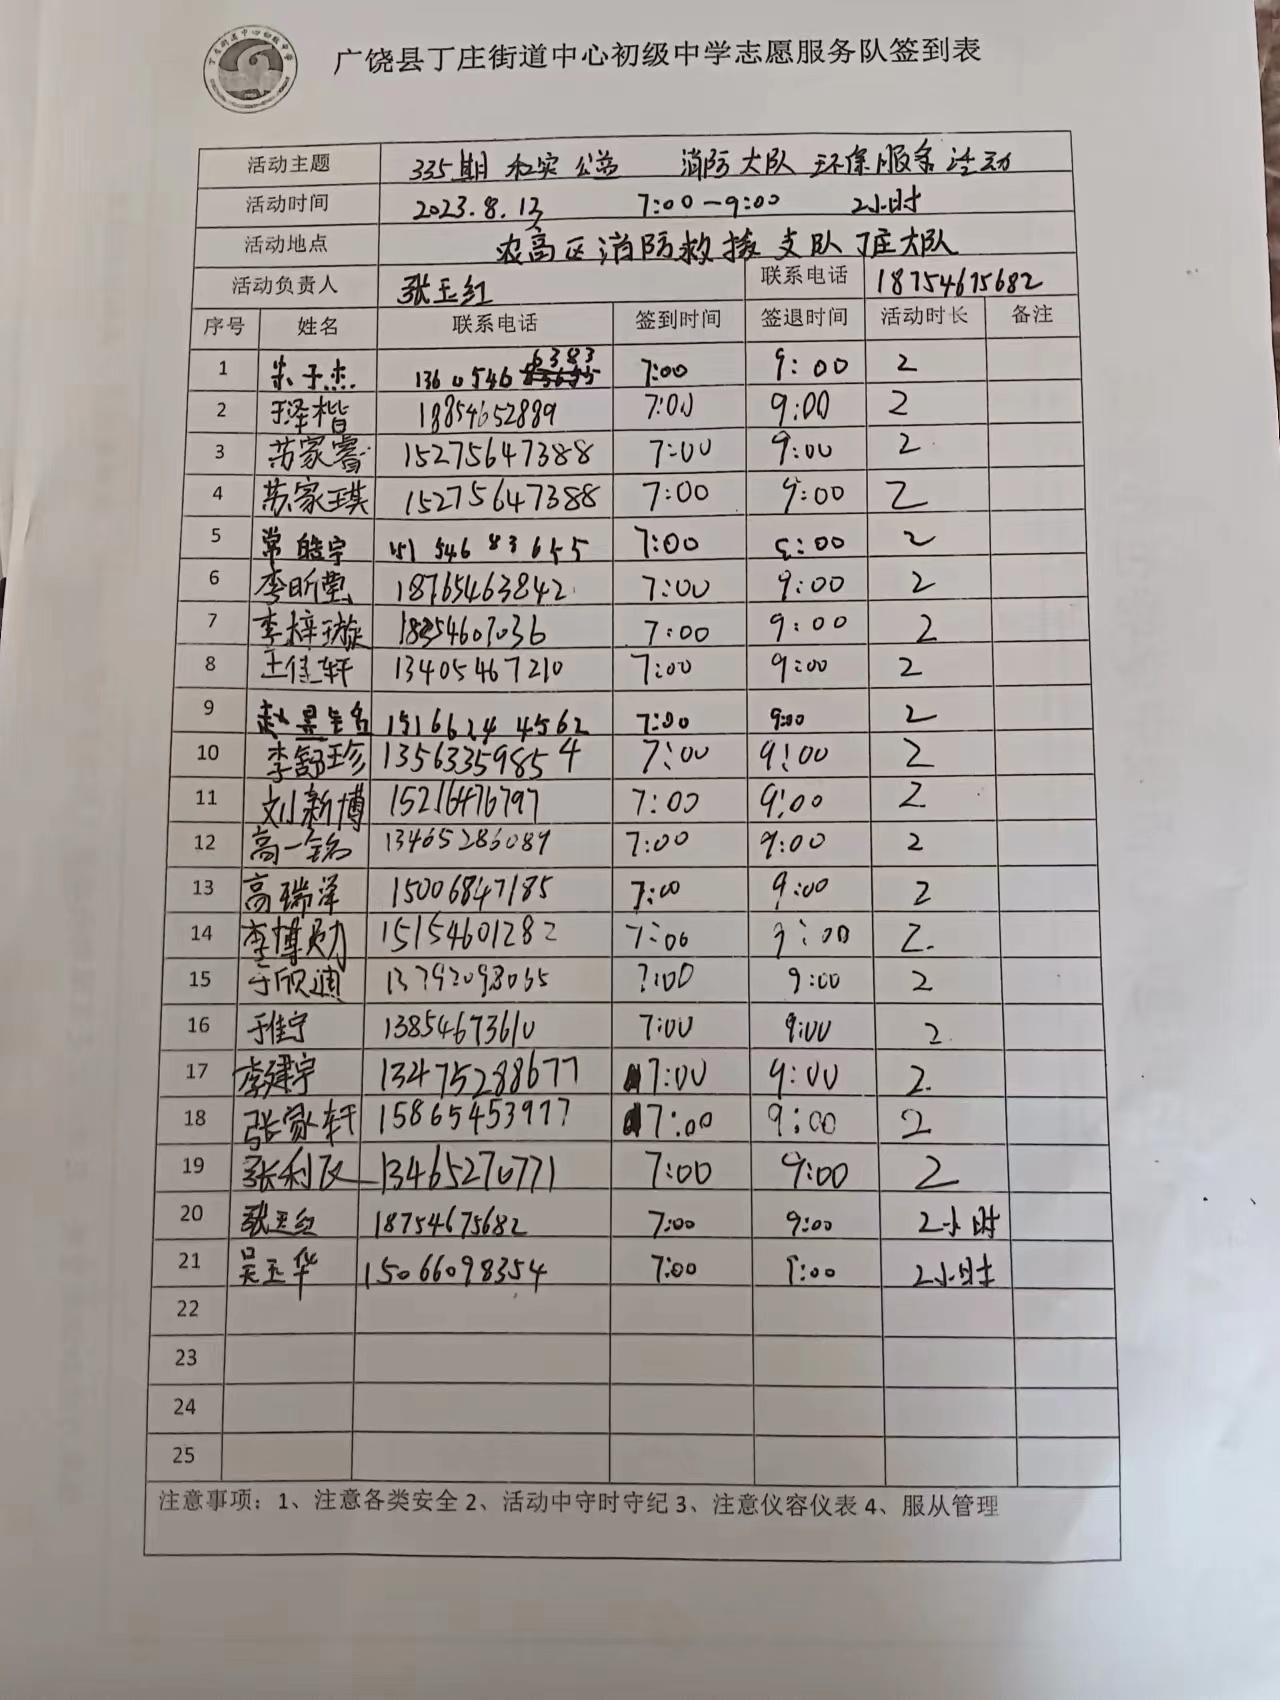 广饶县丁庄街道中心初级中学志愿服务队签到表
活动主题 335期 和实 公益 消防大队 环保服务活动
活动时间 2023.8.13 7:00-9:00 2小时
活动地点 农高区消防救援支队丁庄大队
活动负责人 张玉红 联系电话 18754675682
序号 姓名 联系电话 签到时间 签退时间 活动时长 备注
1 朱子杰 1360546 6383 7:00 9:00 2
2 王泽楷 18854652889 7:00 9:00 2
3 苏家睿 15275647388 7:00 9:00 2
4 苏家琪 15275647388 7:00 9:00 2
5 常皓宇 151 546 83655 7:00 9:00 2
6 李昕莹 18765463842 7:00 9:00 2
7 李梓璇 18254607036 7:00 9:00 2
8 王佳轩 13405467210 7:00 9:00 2
9 15166244562 7:00 9:00 2
10 李舒珍 13563359854 7:00 9:00 2
11 刘新博 15216476797 7:00 9:00 2
12 高一铭 13465286089 7:00 9:00 2
13 高瑞泽 15006847185 7:00 9:00 2
14 李博勋 15154601282 7:00 9:00 2
15 于欣通 13792098065 7:00 9:00 2
16 于佳宁 13854673610 7:00 9:00 2
17 李建宇 13475288677 7:00 9:00 2
18 张家轩 15865453977 7:00 9:00 2
19 张利民 13465270771 7:00 9:00 2
20 张玉红 18754675682 7:00 9:00 2小时
21 吴玉华 15066098354 7:00 9:00 2小时
22
23
24
25
注意事项：1、注意各类安全 2、活动中守时守纪 3、注意仪容仪表 4、服从管理